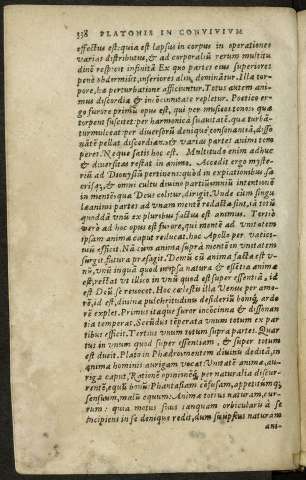 338 PLATONIS IN CONVIVIVM
effectus est: quia est lapsus in corpus in operationes
varias distributus, & ad corporaliũ rerum multitu
dinẽ respicit infinitã. Ex quo partes eius superiores
penè obdormiũt, inferiores aliis dominãtur. Illæ tor-
pore, hæ perturbatione afficiuntur. Totus autem ani
mus discordia & incõcinnitate repletur. Poetico er-
go furore primùm opus est, qui per musicos tonos quæ
torpent suscitet: per harmonicã suauitatẽ, quæ turbã-
tur mulceat: per diuersorũ denique consonantiã, disso
nãtẽ pellat discordiam, & varias partes animi tem
peret. Neque satis hoc est. Multitudo enim adhuc
& diuersitas restat in animo. Accedit ergo myste-
riũ ad Dionysiũ pertinens: quod in expiationibus sa
crisque, & omni cultu diuino partiũ omniũ intentionẽ
in mentẽ: qua Deus colitur, dirigit. Vnde cùm singu
læ animi partes ad vnam mentẽ redactæ sint, iã totũ
quoddã vnũ ex pluribus factus est animus. Tertio
werò ad hoc opus est furore, qui mentẽ ad vnitatem
ipsam animæ caput reducat. hoc Apollo per vatici-
niũ efficit. Nã cùm anima suprà mentẽ in vnitatem
surgit futura præsagit. Demũ cũ anima facta est v-
nũ, vnũ inquã quod in ipsa natura & esẽtia animæ
est, restat vt ilico in vnũ quod est super essentiã, id
est Deũ se reuocet. Hoc cælestis illa Venus per amo-
rẽ, id est, diuinæ pulchritudinis desideriũ boníque ardo
rẽ explet. Primus itaque furor incõcinna & dissonan
tia temperat. Secũdus tẽperata vnum totum ex par
tibus efficit. Tertius vnum totum supra partes. Quar
tus in vnum quod super essentiam, & super totum
est ducit. Plato in Phædro mentem diuinis deditã, in
anima hominis aurigam vocat. Vnitatẽ animæ, au-
rigæ caput. Rationẽ opinionẽque per naturalia discur-
rentẽ, equũ bonũ. Phantasiam cõfusam, appetitumque
sensuum, malũ equum: Animæ totius naturam, cur-
rum: quia motus suus tanquam orbicularis à se
incipiens in se denique redit, dum suiipsius naturam
ani-